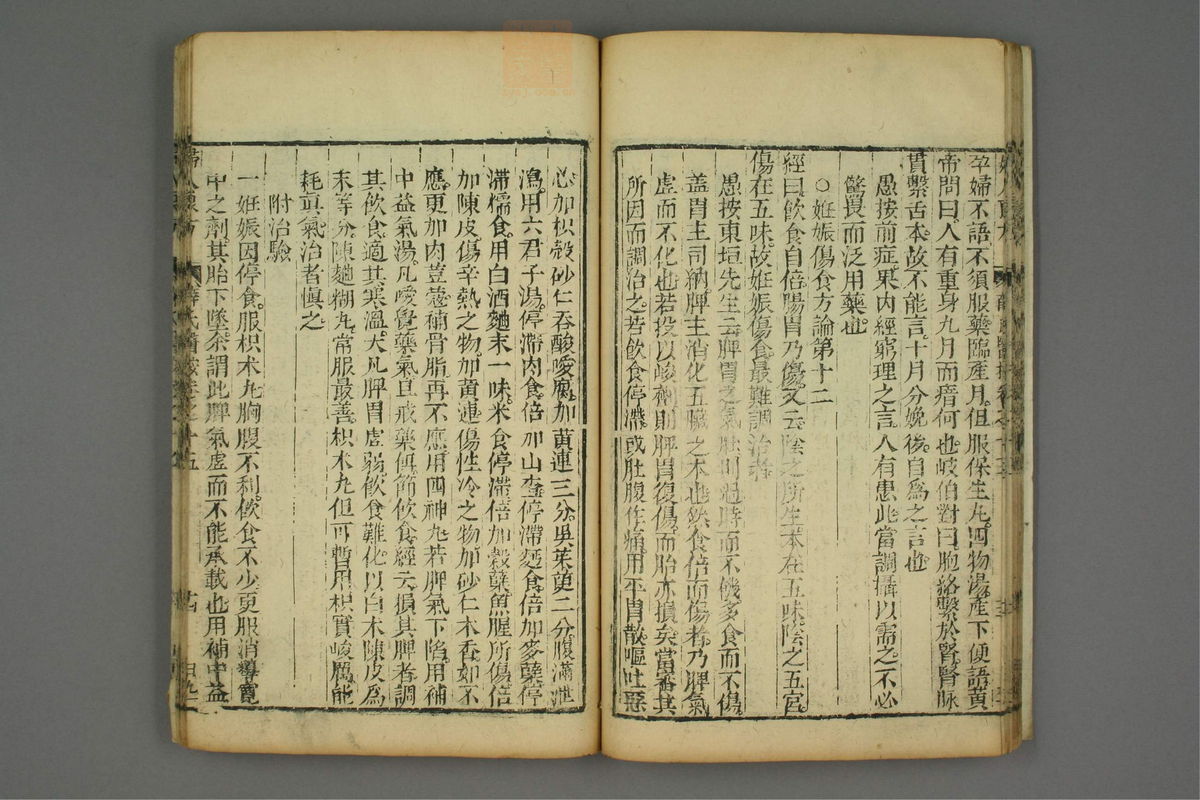 孕婦不語不須服藥臨產月但服保生丸四物湯產下便語黃
帝問曰人有重身九月而瘖何也岐伯對曰胞絡繫於腎腎脉
貫繫舌本故不能言十月分娩後自為之言也
愚按前症果內經窮理之言人有患此當調攝以需之不必
驚畏而泛用藥也
○妊娠傷食方論第十二
經曰飲食自倍陽胃乃傷又云陰之所生本在五味陰之五宮
傷在五味故妊娠傷食最難調治者
愚按東垣先生云脾胃之氣壯則過時而不饑多食而不傷
蓋胃主司納脾主消化五臟之本也然食倍而傷者乃脾氣
虛而不化也若投以峻劑則脾胃復傷而胎亦損矣當審其
所因而調治之若飲食停滯或肚腹作痛用平胃散嘔吐惡
心加枳殼砂仁吞酸噯腐加黃連三分吳茱萸二分腹滿泄
瀉用六君子湯停滯肉食倍加山查停滯麵食倍加麥糵停
滯糯食用白酒麯末一味米食停滯倍加穀糵魚腥所傷倍
加陳皮傷辛熱之物加黃連傷性冷之物加砂仁木香如不
應更加肉荳蔻補骨脂再不應用四神丸若脾氣下陷用補
中益氣湯凡噯覺藥氣且戒藥餌節飲食經云損其脾者調
其飲食適其寒溫大凡脾胃虛弱飲食難化以白朮陳皮為
末等分陳麯糊丸常服最善枳朮丸但可暫用枳實峻厲能
耗真氣治者慎之
附治驗
一妊娠因停食服枳朮丸胸腹不利飲食不少更服消導寬
中之劑其胎下墜余謂此脾氣虛而不能承載也用補中益